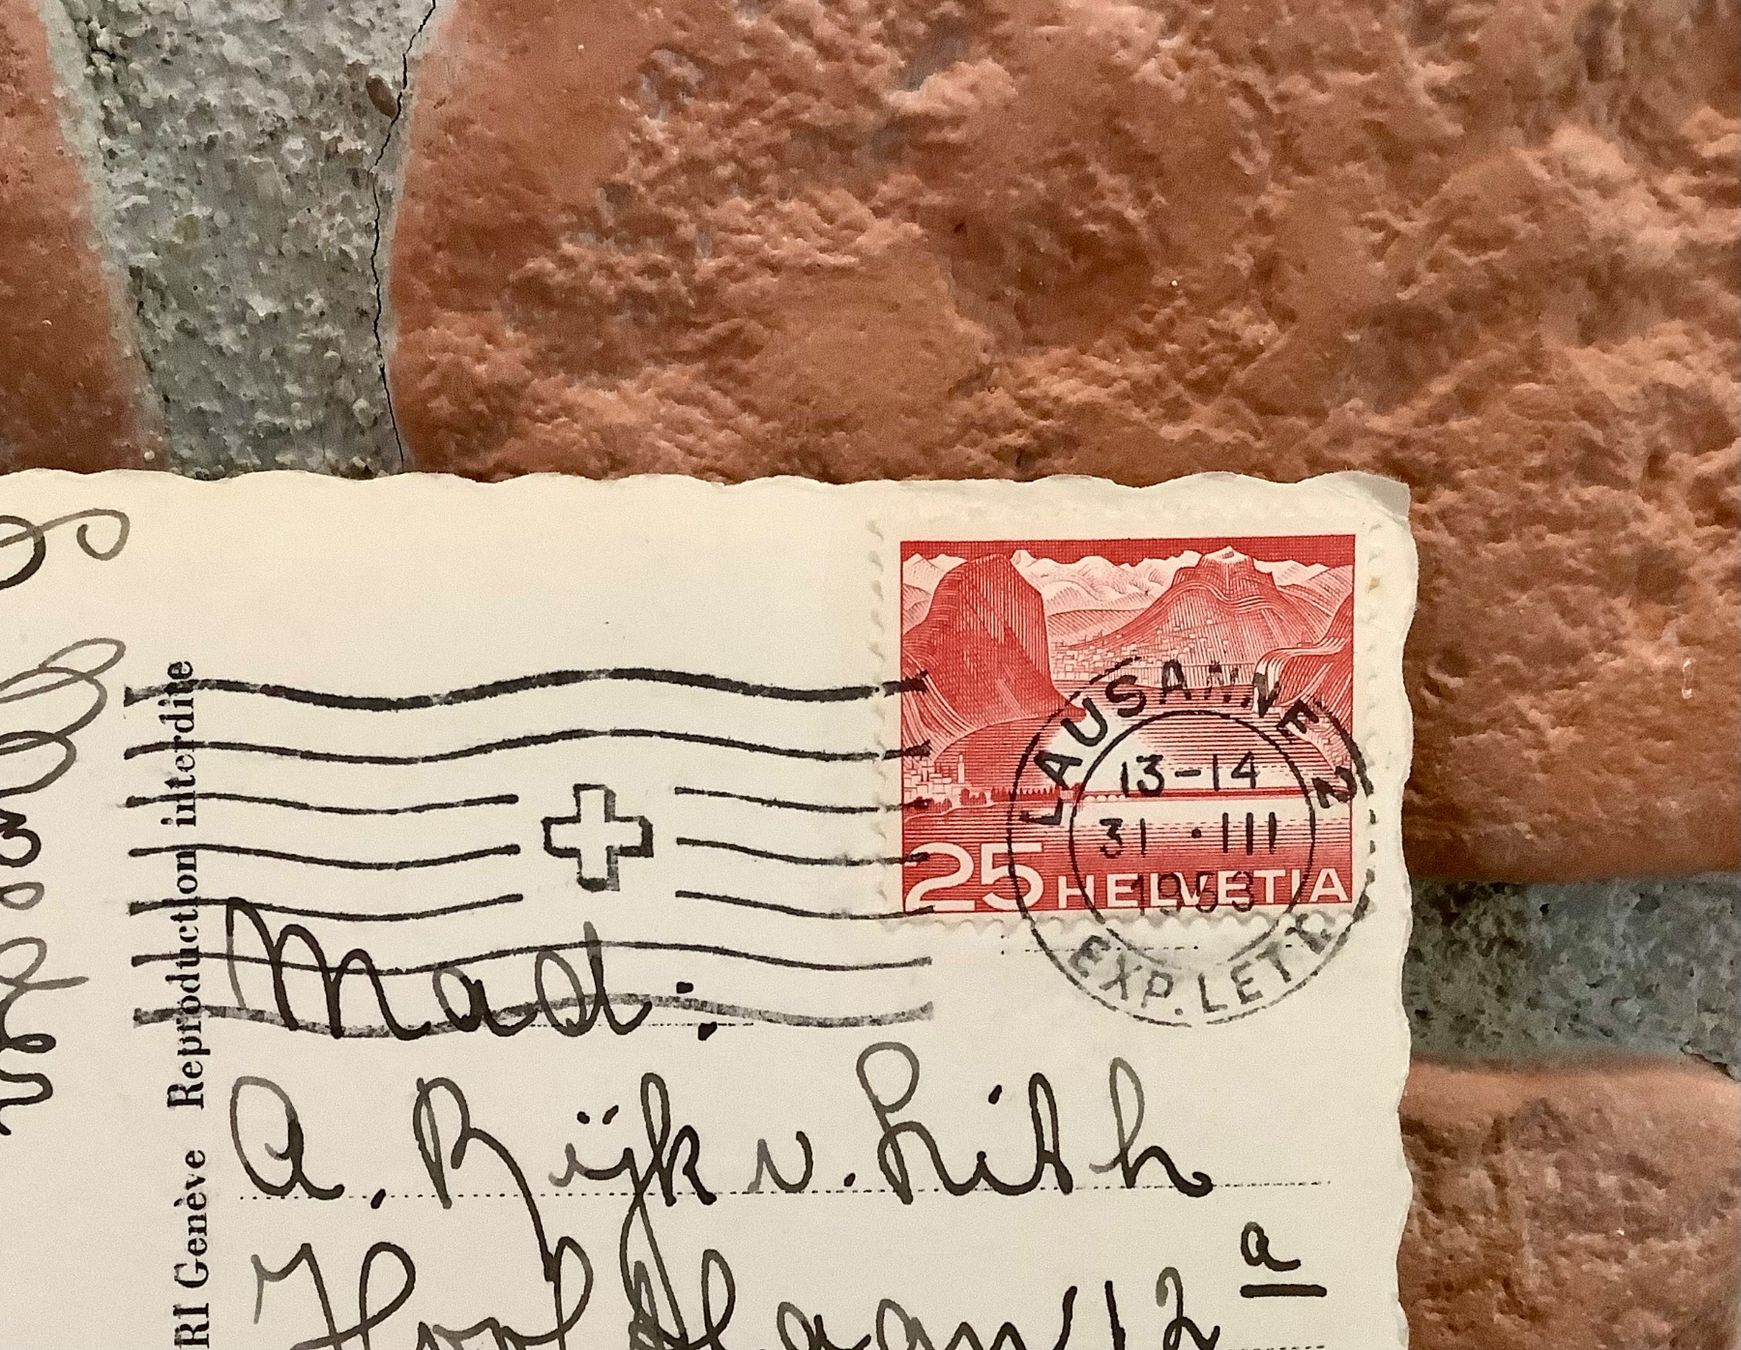 LAUSANNE 2
13-14
31 · III
1953
EXP. LETTR.
25 HELVETIA
Mad:
A. Rijk v. Lith
Hoofdlaan 12ª
RI Genève Reproduction interdite